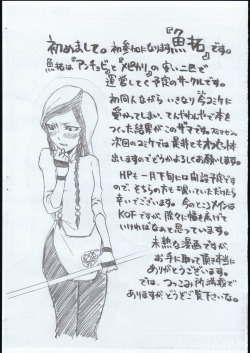 初めまして。初参加になります『魚拓』です。
魚拓は『アンチョビ』と『メピカリ』の安い二匹で
運営してく予定のサークルです。
初同人ながらいきなり今コケに
受かってしまい、てんやわんやで本を
つくった結果がこのザマです。スミマセン。
次回のコミケでは是非ともオフセット本
出しますのでどうかよろしくお願いします。
HPも一月下旬には開設予定です
ので、そちらの方も覗いていただけたら
幸いでございます。今のところメインは
KOFですが、除々に幅を広げて
いければなぁと思っています。
未熟な漫画ですが、
お手に取って頂き本当に
ありがとうございます。
では、つっこみ所満載で
ありますが、どうぞご覧下さいな。